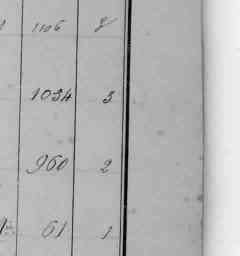 1106
1034 3
960 2
61 1